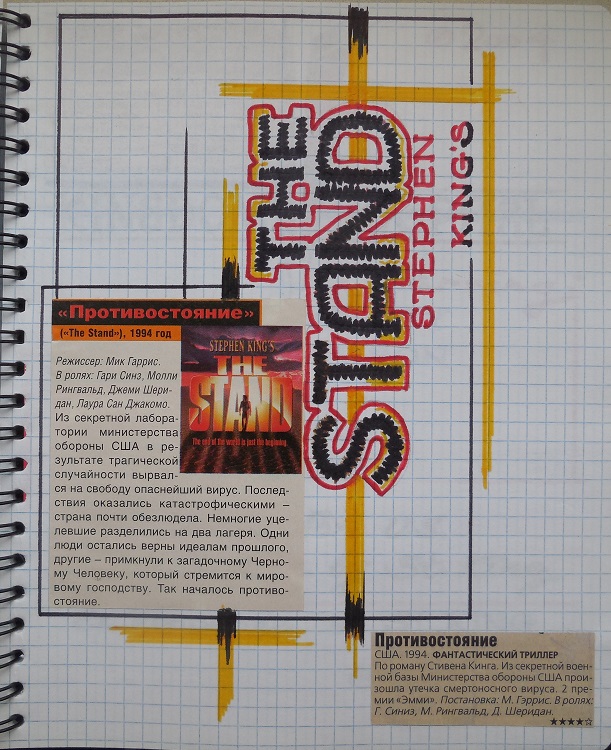 THE
STAND
STEPHEN
KING'S
«Противостояние»
(«The Stand»), 1994 год
Режиссер: Мик Гаррис.
В ролях: Гари Синз, Молли
Рингвальд, Джеми Шери-
дан, Лаура Сан Джакомо.
Из секретной лабора-
тории министерства
обороны США в ре-
зультате трагической
случайности вырвал-
ся на свободу опаснейший вирус. Послед-
ствия оказались катастрофическими –
страна почти обезлюдела. Немногие уце-
левшие разделились на два лагеря. Одни
люди остались верны идеалам прошлого,
другие – примкнули к загадочному Черно-
му Человеку, который стремится к миро-
вому господству. Так началось противо-
стояние.
STEPHEN KING'S
THE
STAND
The end of the world is just the beginning.
Противостояние
США. 1994. ФАНТАСТИЧЕСКИЙ ТРИЛЛЕР
По роману Стивена Кинга. Из секретной воен-
ной базы Министерства обороны США прои-
зошла утечка смертоносного вируса. 2 пре-
мии «Эмми». Постановка: М. Гэррис. В ролях:
Г. Синиз, М. Рингвальд, Д. Шеридан.
★★★★☆